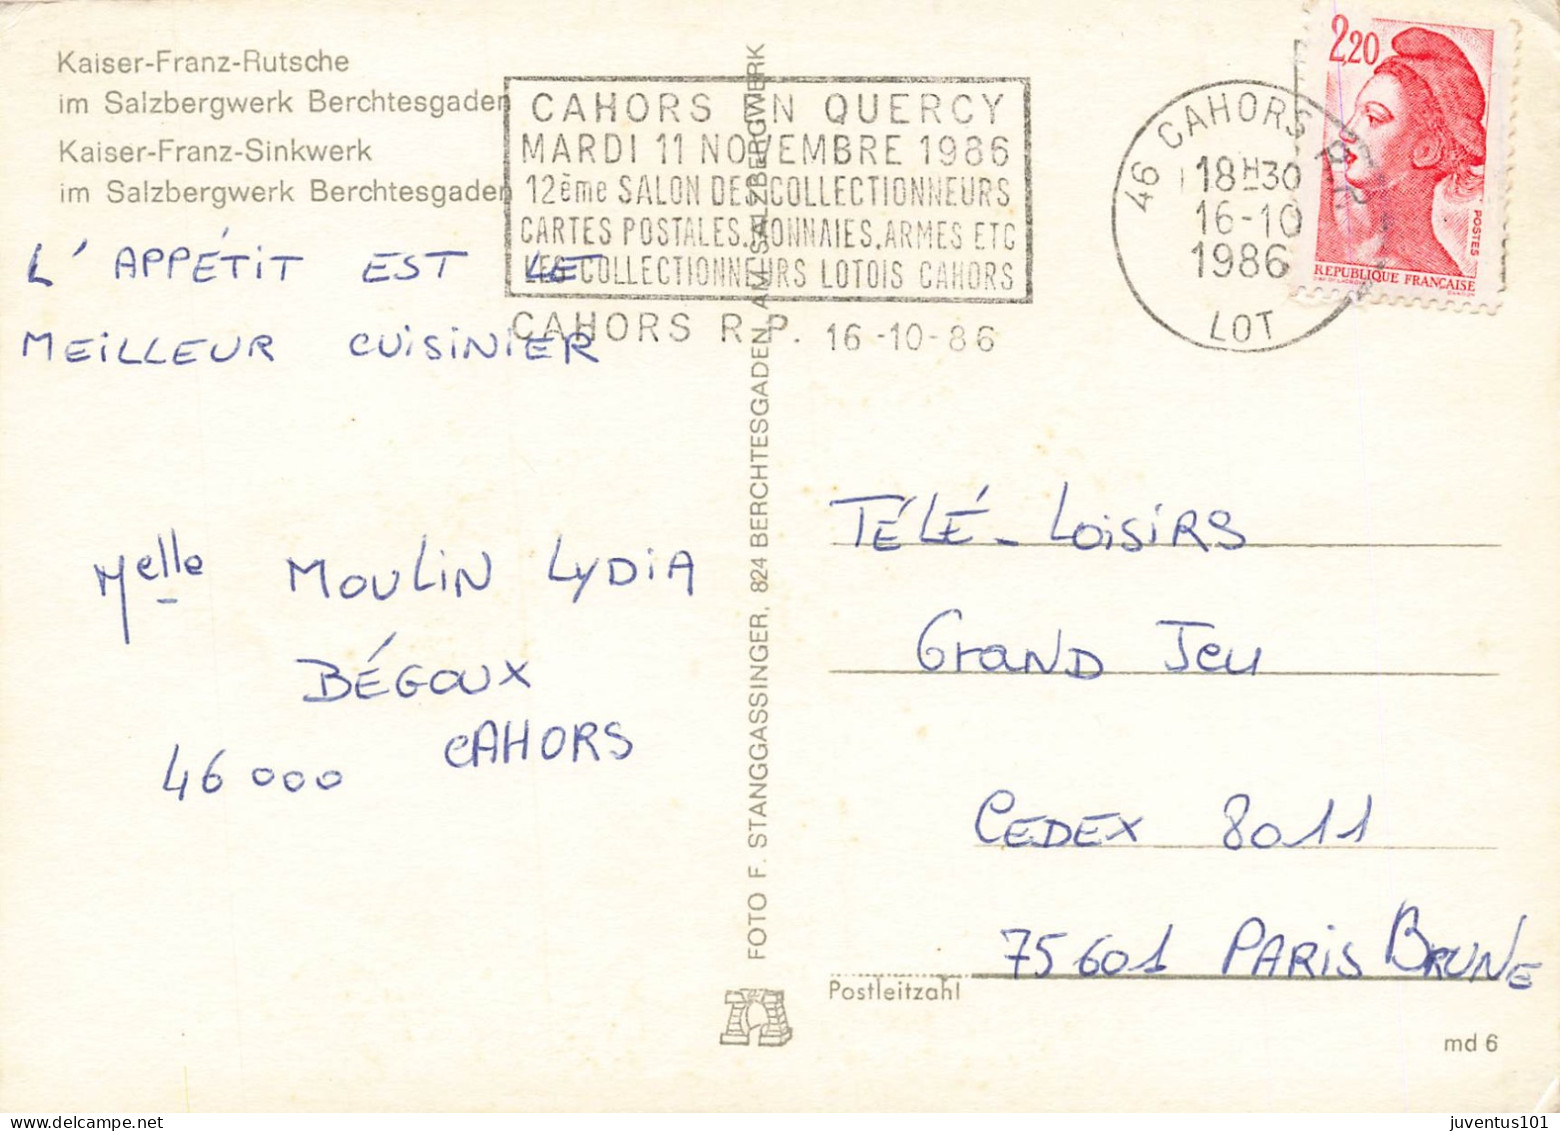 Kaiser-Franz-Rutsche
im Salzbergwerk Berchtesgaden
Kaiser-Franz-Sinkwerk
im Salzbergwerk Berchtesgaden
CAHORS EN QUERCY
MARDI 11 NOVEMBRE 1986
12ème SALON DES COLLECTIONNEURS
CARTES POSTALES, MONNAIES, ARMES ETC
LES COLLECTIONNEURS LOTOIS CAHORS
CAHORS R.P. 16-10-86
46 CAHORS R.P.
18H30
16-10
1986
LOT
2,20
POSTES
REPUBLIQUE FRANÇAISE
L'APPÉTIT EST LE
MEILLEUR CUISINIER
Melle MOULIN LYDIA
BÉGOUX
46000 CAHORS
FOTO F. STANGGASSINGER, 824 BERCHTESGADEN, AM SALZBERGWERK
TÉLÉ-LOISIRS
GRAND JEU
CEDEX 8011
75601 PARIS BRUNE
Postleitzahl
md 6
juventus101